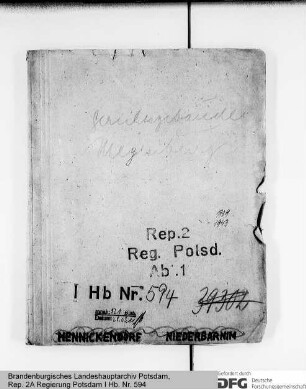 Rep.2
Reg. Potsd.
Ab.1
I Hb Nr. 594
39302
HENNICKENDORF NIEDERBARNIM
Brandenburgisches Landeshauptarchiv Potsdam,
Rep. 2A Regierung Potsdam I Hb. Nr. 594
Gefördert durch
DFG Deutsche
Forschungsgemeinschaft